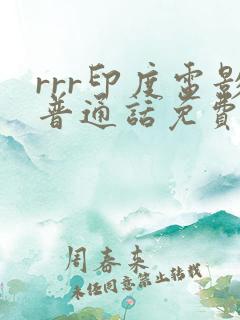 rrr印度电影
普通话免费
周春来
未经同意禁止转载